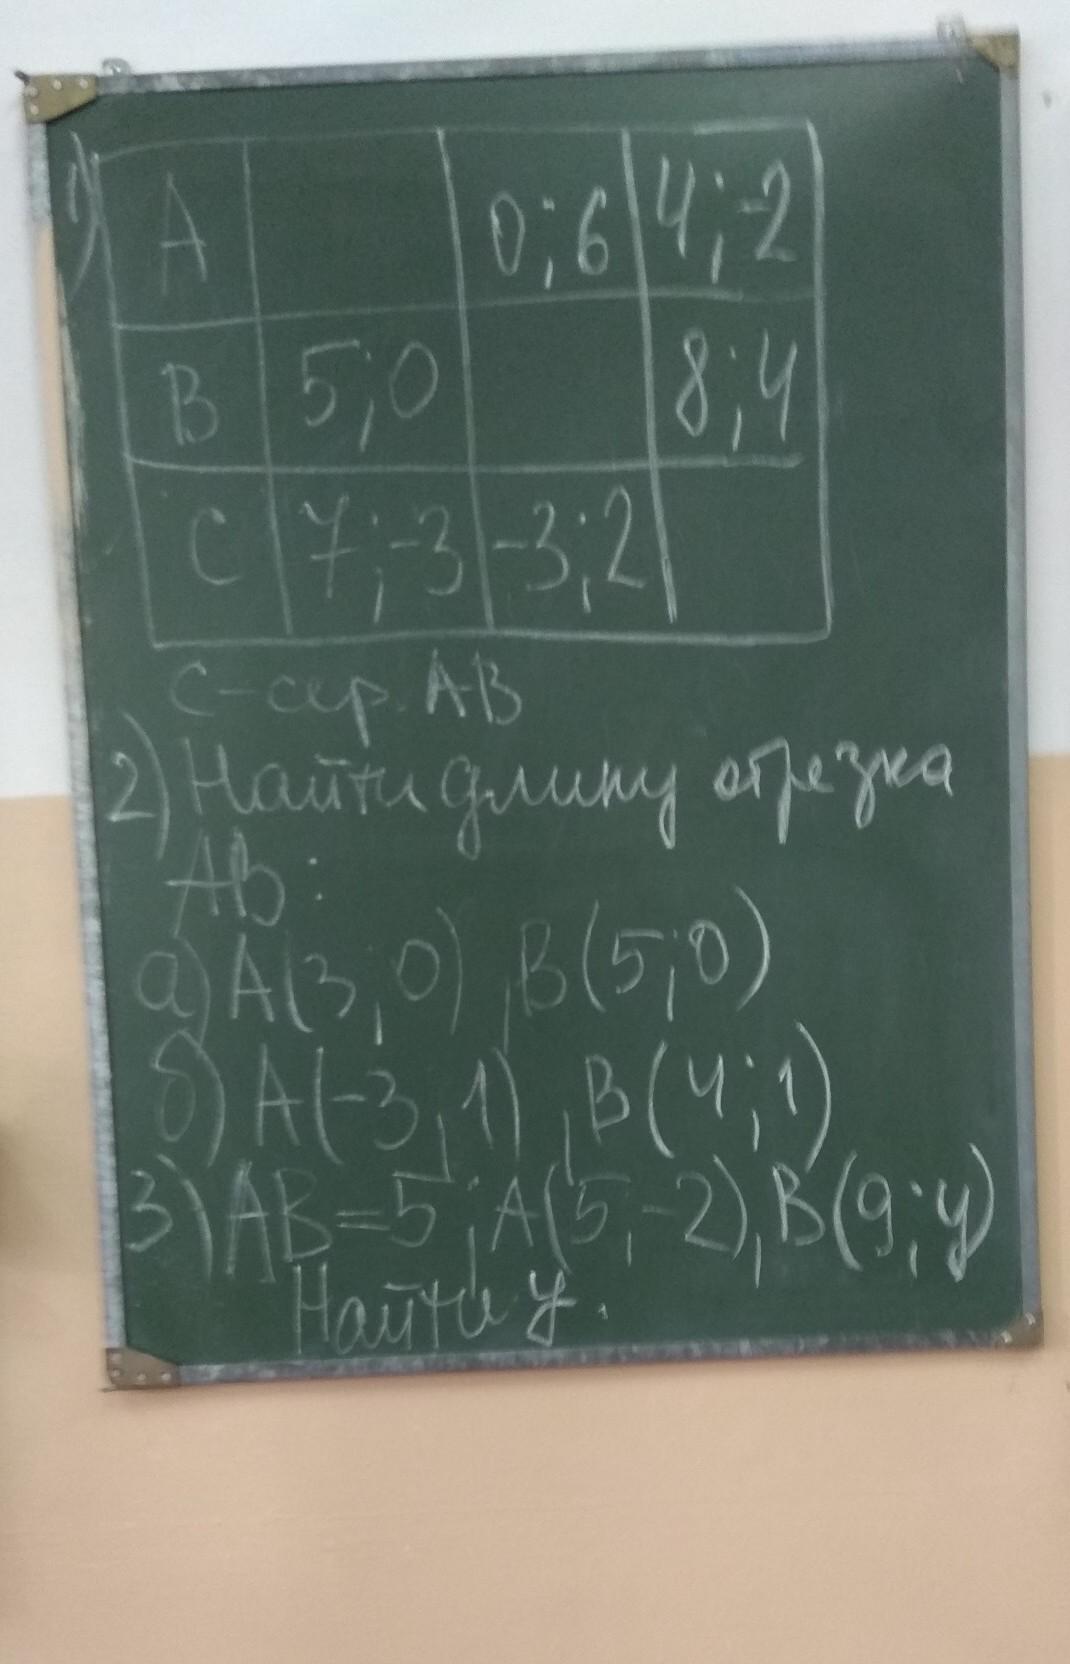 1)
A 0;6 4;-2
B 5;0 8;4
C 7;-3 -3;2
C-сер. AB
2) Найти длину отрезка
AB:
а) A(3;0), B(5;0)
б) A(-3;1), B(4;1)
3) AB=5; A(5;-2), B(9;y)
Найти y.